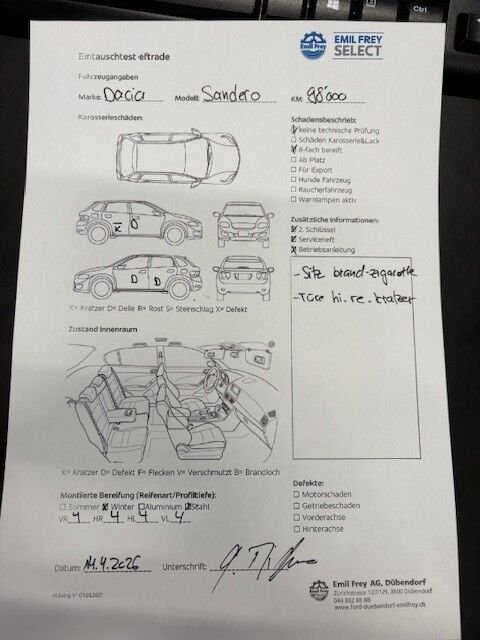 Ctrl
EMIL FREY
SELECT
Emil Frey
Eintauschtest eftrade
Fahrzeugangaben
Marke: Dacia Modell: Sandero KM: 98'000
Karosserieschäden:
K D
D D
K= Kratzer D= Delle R= Rost S= Steinschlag X= Defekt
Schadensbeschrieb:
keine technische Prüfung
Schäden Karosserie&Lack
8-fach bereift
Ab Platz
Für Export
Hunde Fahrzeug
Raucherfahrzeug
Warnlampen aktiv
Zusätzliche Informationen:
2. Schlüssel
Serviceheft
Betriebsanleitung
- Sitz brand-zigarette
- Türe hi. re. kratzer
Zustand Innenraum
K= Kratzer D= Defekt F= Flecken V= Verschmutzt B= Brandloch
Montierte Bereifung (Reifenart/Profiltiefe):
Sommer Winter Aluminium Stahl
VR 4 HR 4 HL 4 VL 4
Defekte:
Motorschaden
Getriebeschaden
Vorderachse
Hinterachse
Datum: 14.4.2026 Unterschrift:
Emil Frey AG, Dübendorf
Zürichstrasse 127/129, 8600 Dübendorf
044 802 88 88
www.ford-duebendorf-emilfrey.ch